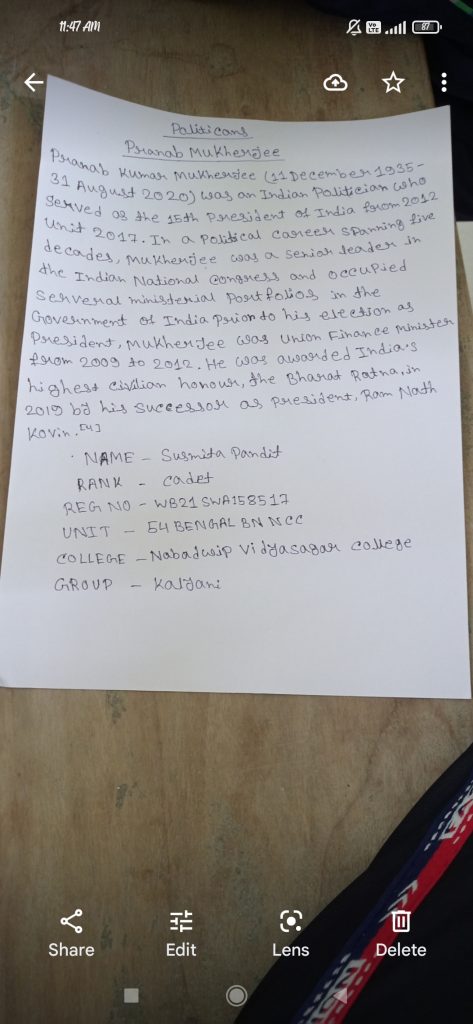 11:47 AM
Vo LTE 87
Politicans
Pranab Mukherjee
Pranab Kumar Mukherjee (11 December 1935-
31 August 2020) was an Indian Politician who
Served as the 15th President of India from 2012
Unit 2017. In a Political career spanning five
decades, Mukherjee was a senior leader in
the Indian National Congress and occupied
Serveral ministerial Portfolios in the
Government of India Prior to his election as
President, Mukherjee was Union Finance Minister
from 2009 to 2012. He was awarded India's
highest civilian honour, the Bharat Ratna, in
2019 by his successor as President, Ram Nath
Kovin. [4]
NAME - Susmita Pandit
RANK - cadet
REG NO - WB21SWA158517
UNIT - 54 BENGAL BN NCC
COLLEGE - Nabadwip Vidyasagar college
GROUP - Kalyani
Share Edit Lens Delete